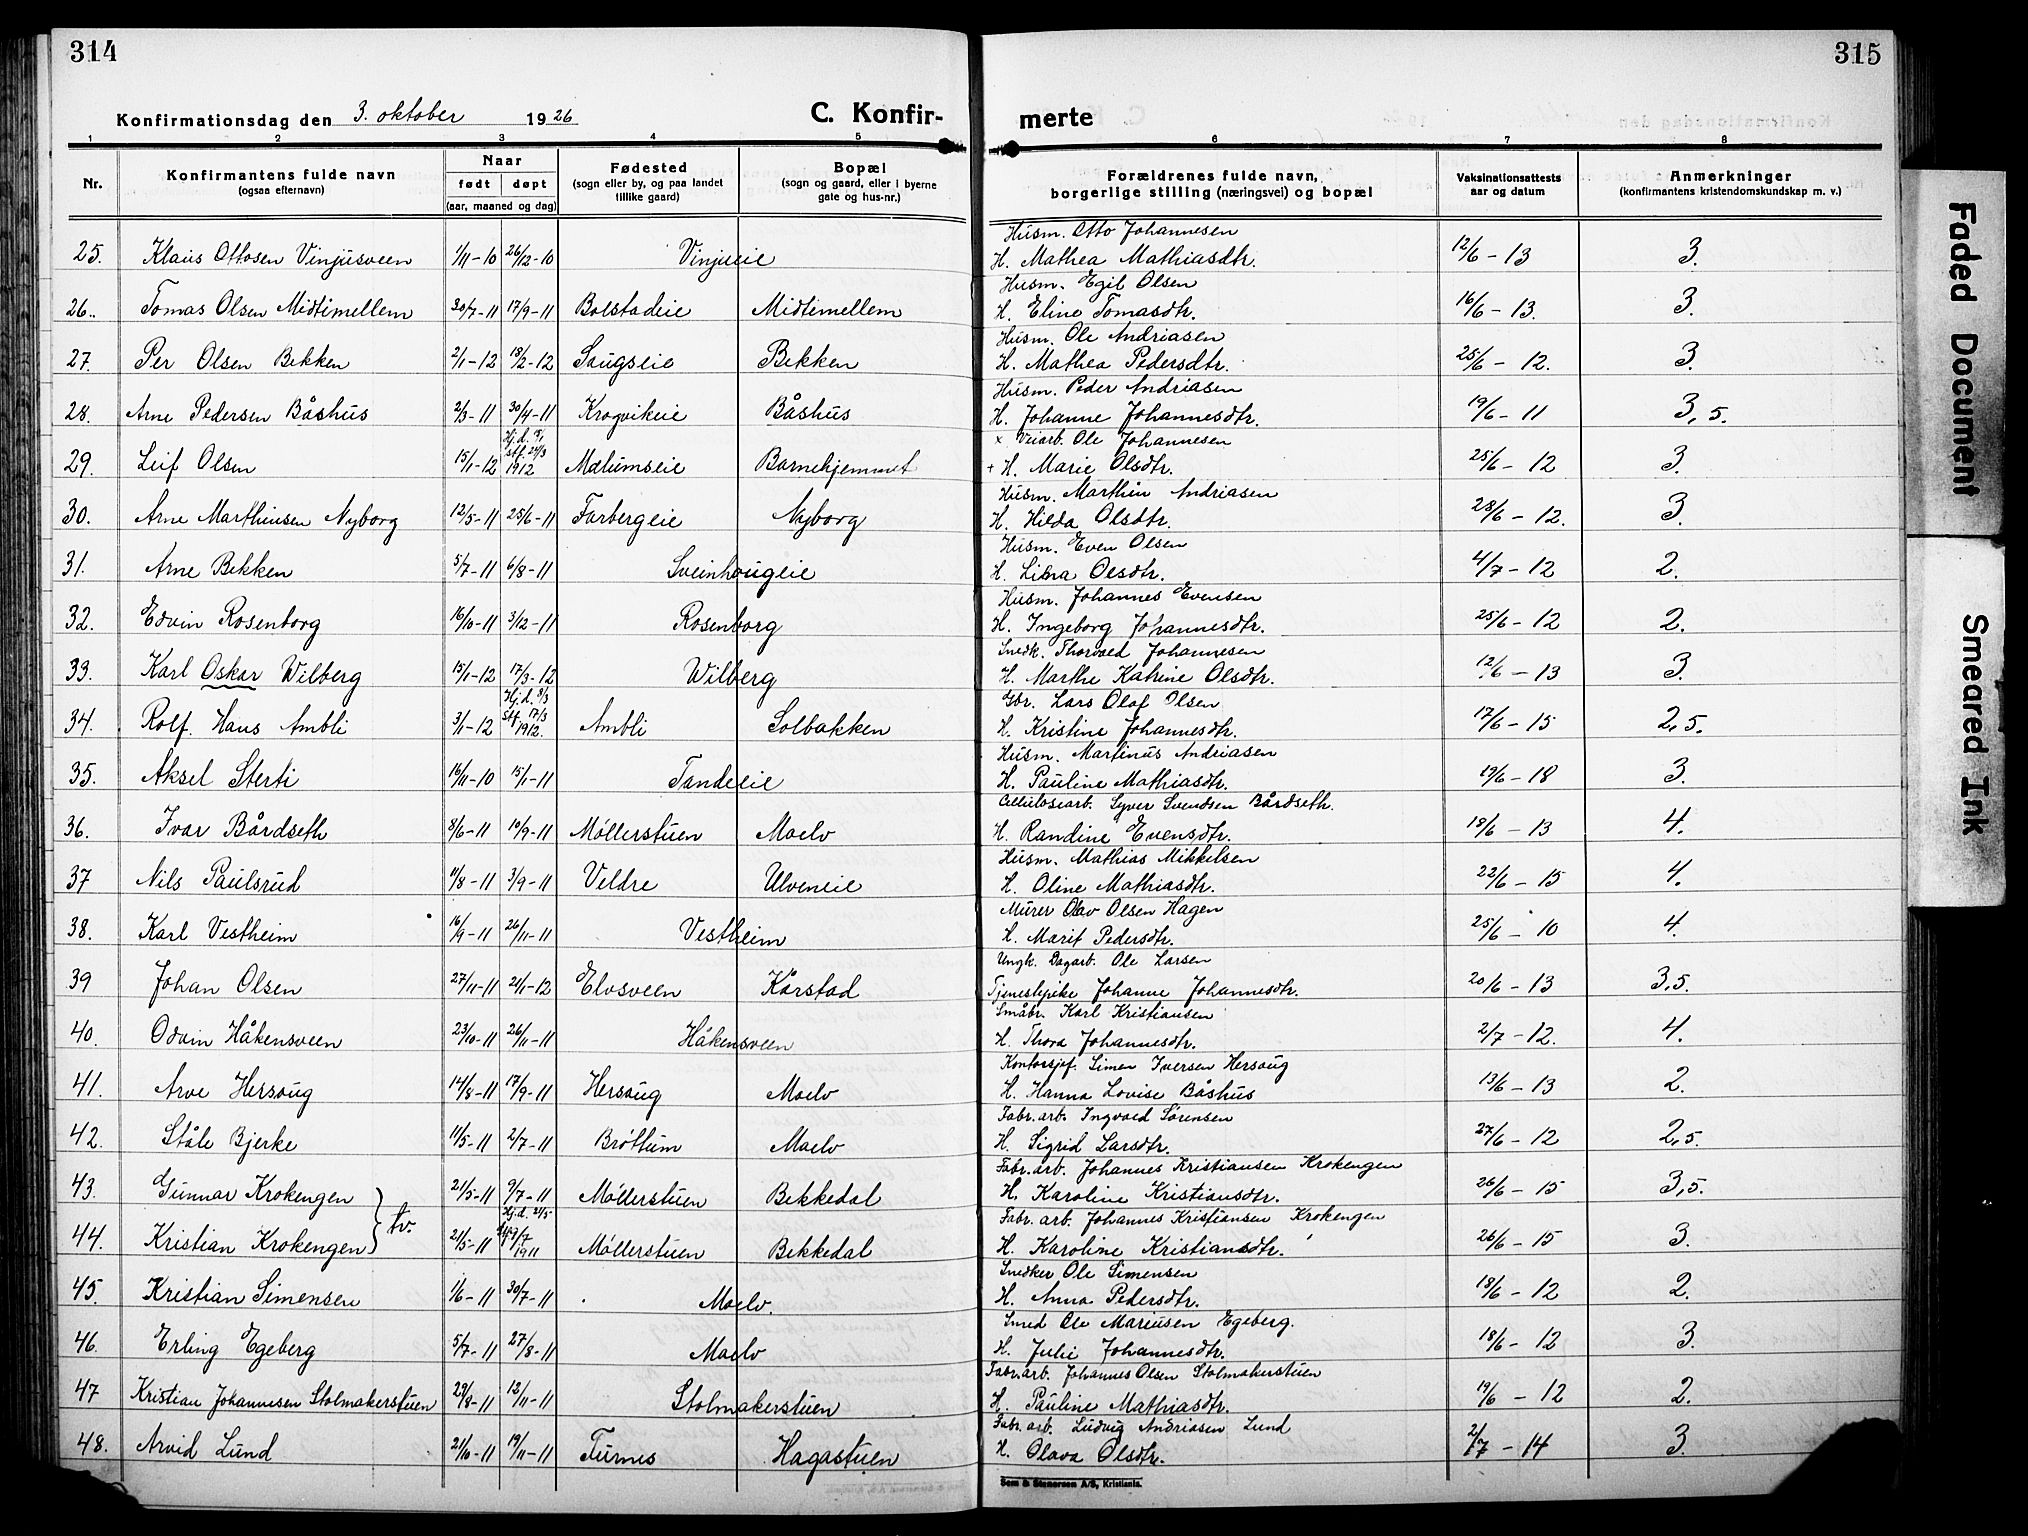 314
315
Konfirmationsdag den 3. oktober 1926
C. Konfir-
merte
1 2 3 4 5
6 7 8
Nr.
Konfirmantens fulde navn
(ogsaa efternavn)
Naar
født døpt
(aar, maaned og dag)
Fødested
(sogn eller by, og paa landet
tillike gaard)
Bopæl
(sogn og gaard, eller i byerne
gate og hus-nr.)
Forældrenes fulde navn,
borgerlige stilling (næringsvei) og bopæl
Vaksinationsattests
aar og datum
Anmerkninger
(konfirmantens kristendomskundskap m. v.)
Husm. Otto Johannesen
25. Klaus Ottosen Vinjusveen 1/11-10 26/12-10 Vinjueie H. Mathea Mathiasdtr. 12/6-13 3.
Husm. Egil Olsen
26. Tomas Olsen Midtimellem 20/7-11 17/9-11 Bolstadeie Midtimellem H. Eline Tomasdtr. 16/6-13. 3.
Husm. Ole Andriasen
27. Per Olsen Bekken 2/1-12 18/2-12 Saugseie Bekken H. Mathea Pedersdtr. 25/6-12. 3.
Husm. Peder Andriasen
28. Arne Pedersen Båshus 2/3-11 30/4-11 Krogvikeie Båshus H. Johanne Johannesdtr. 19/6-11 3,5.
Hj.d.
stf. 24/3
x Veiarb. Ole Johannesen
29. Leif Olsen 15/1-12 1912 Mælumseie Barnehjemmet + H. Marie Olsdtr. 25/6-12 3.
Husm. Marthin Andriasen
30. Arne Marthinsen Nyborg 12/5-11 25/6-11 Farbergeie Nyborg H. Hilda Olsdtr. 28/6-12. 3.
Husm. Even Olsen
31. Arne Bekken 5/7-11 6/8-11 Sveinhougeie H. Lina Olsdtr. 4/7-12 2.
Husm. Johannes Evensen
32. Edvin Rosenborg 16/10-11 3/12-11 Rosenborg H. Ingeborg Johannesdtr. 25/6-12 2.
Snedk. Thorvald Johannesen
33. Karl Oskar Wilberg 15/1-12 17/3-12 Wilberg H. Marthe Katrine Olsdtr. 12/6-13 3.
Hj.d. 8/3
stf. 17/3
Gbr. Lars Olaf Olsen
34. Rolf Hans Ambli 3/1-12 1912. Ambli Solbakken H. Kristine Johannesdtr. 17/6-15 2,5.
Husm. Martinus Andriasen
35. Aksel Sterti 16/11-10 15/1-11 Tandeeie H. Pauline Mathiasdtr. 19/6-18 3.
Cellulosearb. Syver Svendsen Bårdseth.
36. Ivar Bårdseth 8/6-11 10/9-11 Møllerstuen Moelv H. Randine Evensdtr. 18/6-13 4.
Husm. Mathias Mikkelsen
37 Nils Paulsrud 11/8-11 3/9-11 Veldre Ulveneie H. Oline Mathiasdtr. 22/6-15 4.
Murer Olav Olsen Hagen
38. Karl Vestheim 16/9-11 26/11-11 Vestheim H. Marit Pedersdtr. 25/6-10 4.
Ungk. Dagarb. Ole Larsen
39 Johan Olsen 27/11-11 21/1-12 Elvsveen Kårstad Tjenestepike Johanne Johannesdtr. 20/6-13 3,5.
Småbr. Karl Kristiansen
40. Odvin Håkensveen 23/10-11 26/11-11 Håkensveen H. Thora Johannesdtr. 2/7-12. 4.
Kontorsjef. Simen Iversen Hersoug
41. Arve Hersoug 14/8-11 17/9-11 Hersoug Moelv H. Hanna Lovise Båshus 13/6-13 2.
Fabr. arb. Ingvald Sørensen
42. Ståle Bjerke 11/5-11 2/7-11 Brøttum Moelv H. Sigrid Larsdtr. 27/6-12 2,5.
Fabr. arb. Johannes Kristiansen Krokengen
43. Gunnar Krokengen 21/5-11 9/7-11 Møllerstuen Bekkedal H. Karoline Kristiansdtr. 26/6-15 3,5.
tv.
Hj.d. 21/5
stf. 9/7
Fabr. arb. Johannes Kristiansen Krokengen
44. Kristian Krokengen 21/5-11 1911 Møllerstuen Bekkedal H. Karoline Kristiansdtr. 26/6-15 3.
Snedker Ole Simensen
45. Kristian Simensen 1/6-11 30/7-11 Moelv. H. Anna Pedersdtr. 18/6-12 2.
Smed Ole Mariusen Egeberg.
46. Erling Egeberg 5/7-11 27/8-11 Moelv H. Julie Johannesdtr. 18/6-12 3.
Fabr. arb. Johannes Olsen Stolmakerstuen
47 Kristian Johannesen Stolmakerstuen 29/8-11 12/11-11 Stolmakerstuen H. Pauline Mathiasdtr. 19/6-12 2.
Fabr. arb. Ludvig Andriasen Lund
48. Arvid Lund 21/10-11 19/11-11 Furnes Hagastuen H. Olava Olsdtr. 2/7-14 3.
Sem & Stenersen A/S, Kristiania.
Faded Document
Smeared Ink